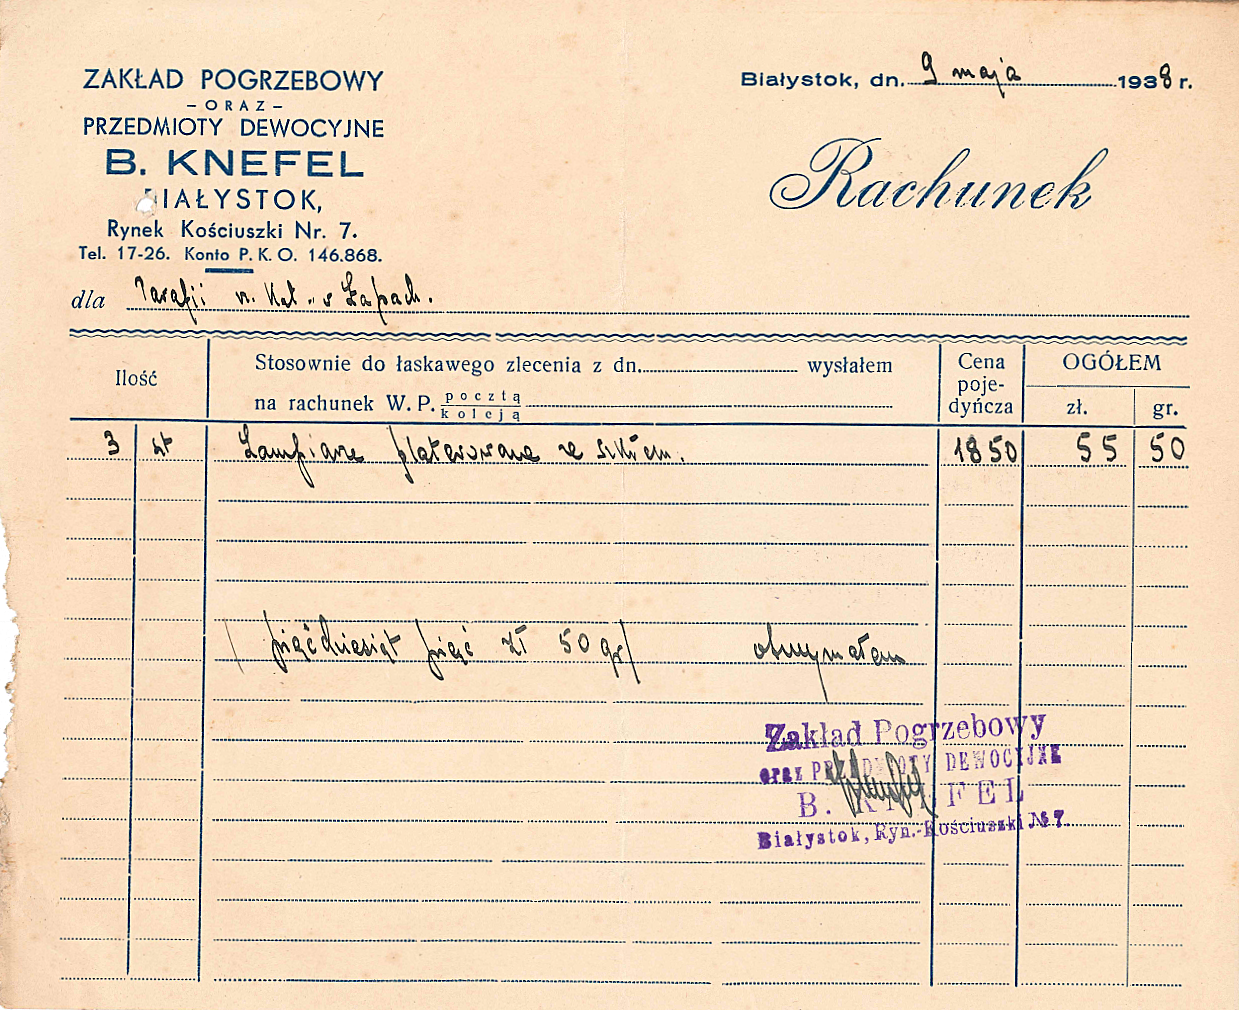 ZAKŁAD POGRZEBOWY
– ORAZ –
PRZEDMIOTY DEWOCYJNE
B. KNEFEL
BIAŁYSTOK,
Rynek Kościuszki Nr. 7.
Tel. 17-26. Konto P. K. O. 146.868.
Białystok, dn. 9 maja 1938 r.
Rachunek
dla Parafii n. Kat. w Łapach.
Ilość
Stosownie do łaskawego zlecenia z dn. wysłałem
na rachunek W. P. pocztą
koleją
Cena poje-
dyńcza
OGÓŁEM
zł. gr.
3 szt Lampiarze platerowane ze szkłem. 1850 55 50
/pięćdziesiąt pięć zł 50 gr/ otrzymałem
Zakład Pogrzebowy
oraz PRZEDMIOTY DEWOCYJNE
B. KNEFEL
Białystok, Ryn.-Kościuszki № 7.